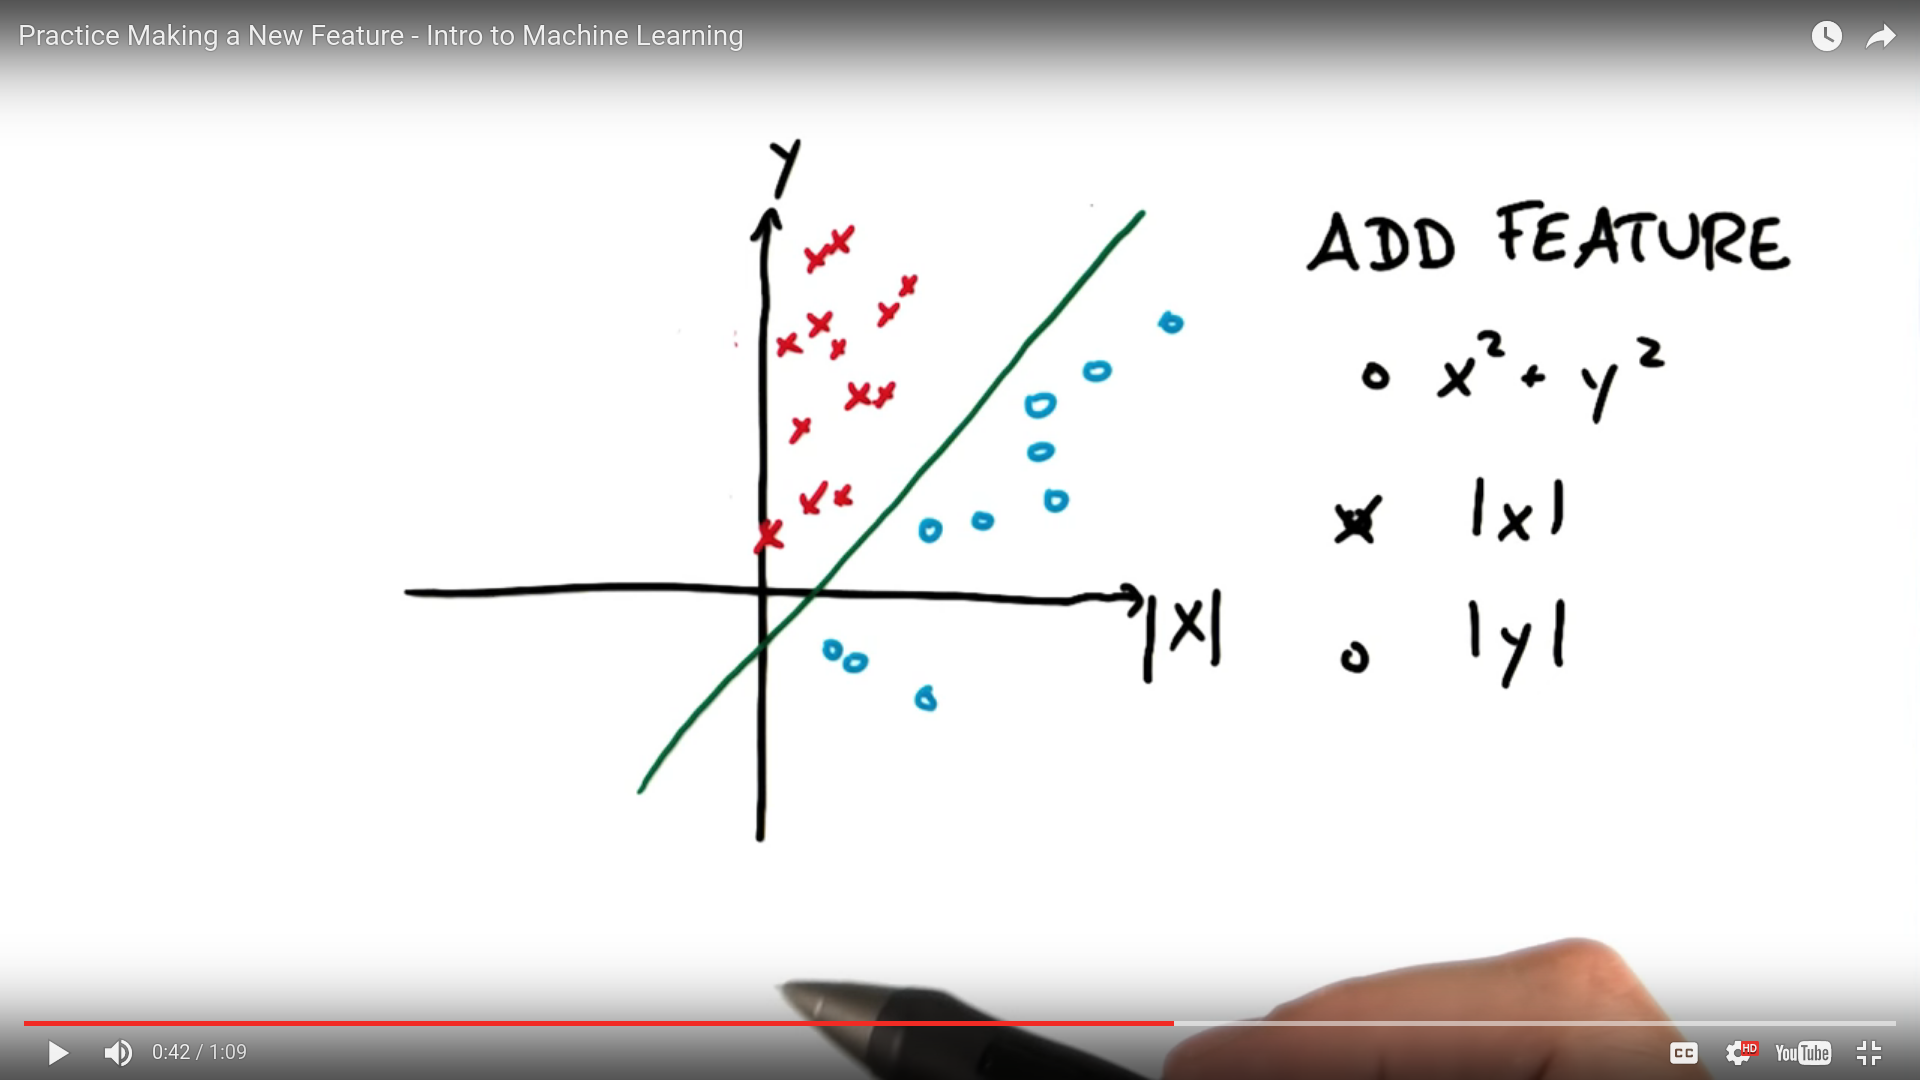 Practice Making a New Feature - Intro to Machine Learning
Y
ADD FEATURE
x² + y²
|x|
|X|
|y|
0:42 / 1:09
CC
HD
YouTube